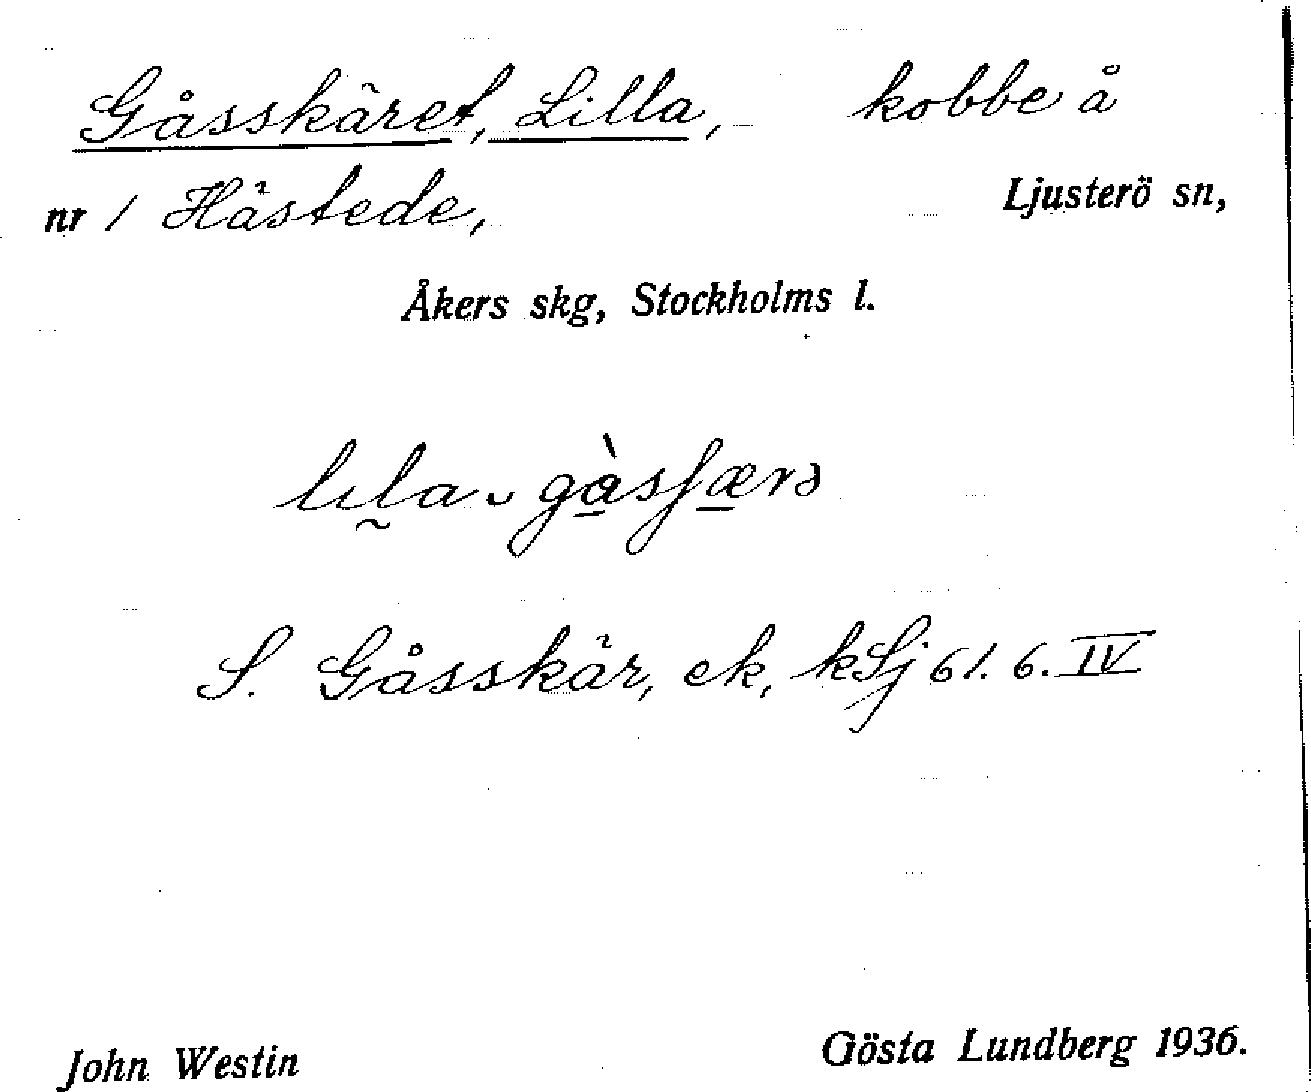 Gåsskäret, Lilla, kobbe å
nr 1 Hästede, Ljusterö sn,
Åkers skg, Stockholms l.
lɩla gàsʃærə
S. Gåsskär, ek, kSj 61. 6. IV
John Westin Gösta Lundberg 1936.